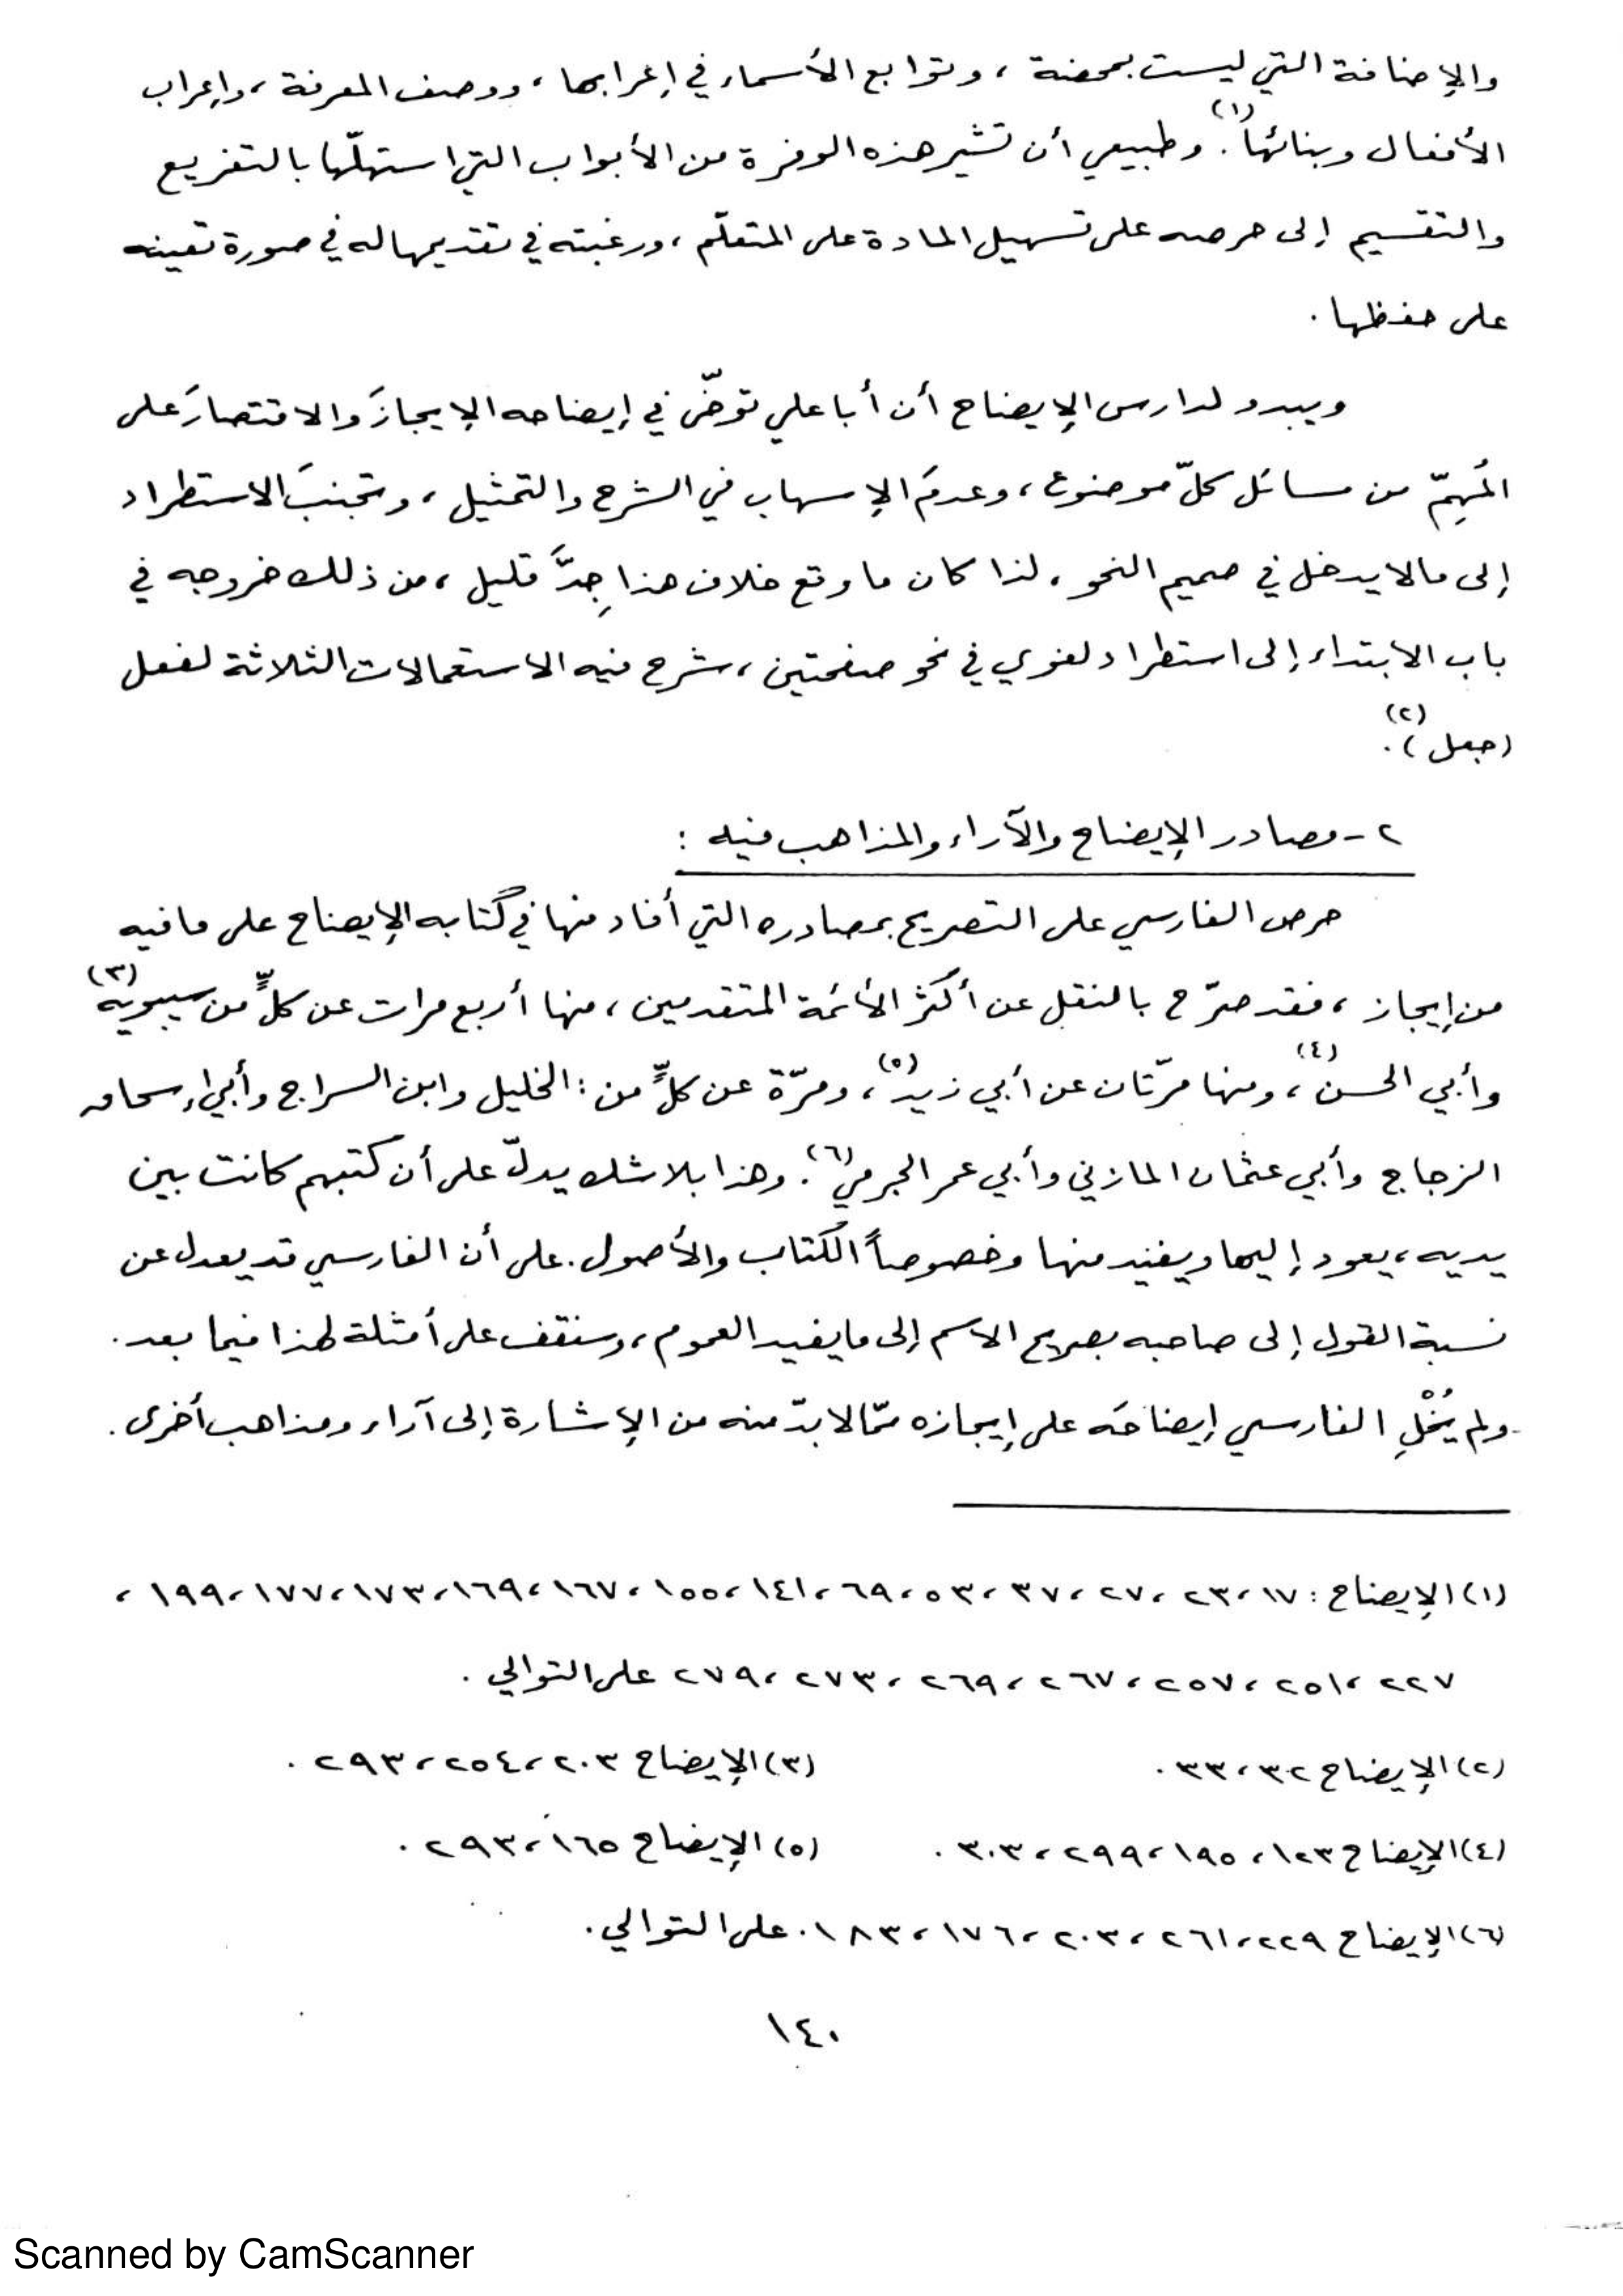 والإضافة التي ليست بمحضة ، وتوابع الأسماء في إعرابها ، ووصف المعرفة ، وإعراب
الأفعال وبنائها(١) . وطبيعي أن تشير هذه الوفرة من الأبواب التي استهلّها بالتفريع
والتقسيم إلى حرصه على تسهيل المادة على المتعلّم ، ورغبته في تقديمها له في صورة تعينه
على حفظها .
ويبدو لدارس الإيضاح أن أبا علي توخّى في إيضاحه الإيجازَ والاقتصارَ على
المُهِمّ من مسائل كلّ موضوع ، وعدمَ الإسهاب في الشرح والتمثيل ، وتجنبَ الاستطراد
إلى ما لا يدخل في صميم النحو ، لذا كان ما وقع خلاف هذا جِدَّ قليل ، من ذلك خروجه في
باب الابتداء إلى استطراد لغوي في نحو صفحتين ، شرح فيه الاستعمالات الثلاثة لفعل
(جعل)(٢) .
٢ - مصادر الإيضاح والآراء والمذاهب فيه :
حرص الفارسي على التصريح بمصادره التي أفاد منها في كتابه الإيضاح على ما فيه
من إيجاز ، فقد صرّح بالنقل عن أكثر الأئمة المتقدمين ، منها أربع مرات عن كلٍّ من سيبويه(٣)
وأبي الحسن(٤) ، ومنها مرّتان عن أبي زيد(٥) ، ومرّة عن كلٍّ من : الخليل وابن السراج وأبي إسحاق
الزجاج وأبي عثمان المازني وأبي عمر الجرمي(٦) . وهذا بلا شك يدلّ على أن كتبهم كانت بين
يديه ، يعود إليها ويفيد منها وخصوصاً الكتاب والأصول . على أن الفارسي قد يعدل عن
نسبة القول إلى صاحبه بصريح الاسم إلى ما يفيد العموم ، وسنقف على أمثلة لهذا فيما بعد .
ولم يُخْلِ الفارسي إيضاحَه على إيجازه ممّا لا بدّ منه من الإشارة إلى آراء ومذاهب أخرى .
(١) الإيضاح : ١٧ ، ٢٣ ، ٢٧ ، ٣٧ ، ٥٣ ، ٦٩ ، ١٤١ ، ١٥٥ ، ١٦٧ ، ١٦٩ ، ١٧٣ ، ١٧٧ ، ١٩٩ ،
٢٢٧ ، ٢٥١ ، ٢٥٧ ، ٢٦٧ ، ٢٦٩ ، ٢٧٣ ، ٢٧٩ على التوالي .
(٢) الإيضاح ٣٢ ، ٣٣ . (٣) الإيضاح ٢٠٣ ، ٢٥٤ ، ٢٩٣ .
(٤) الإيضاح ١٢٣ ، ١٩٥ ، ٢٩٩ ، ٣٠٣ . (٥) الإيضاح ١٦٥ ، ٢٩٣ .
(٦) الإيضاح ٢٢٩ ، ٢٦١ ، ٢٠٣ ، ١٧٦ ، ١٨٣ . على التوالي .
١٤٠
Scanned by CamScanner